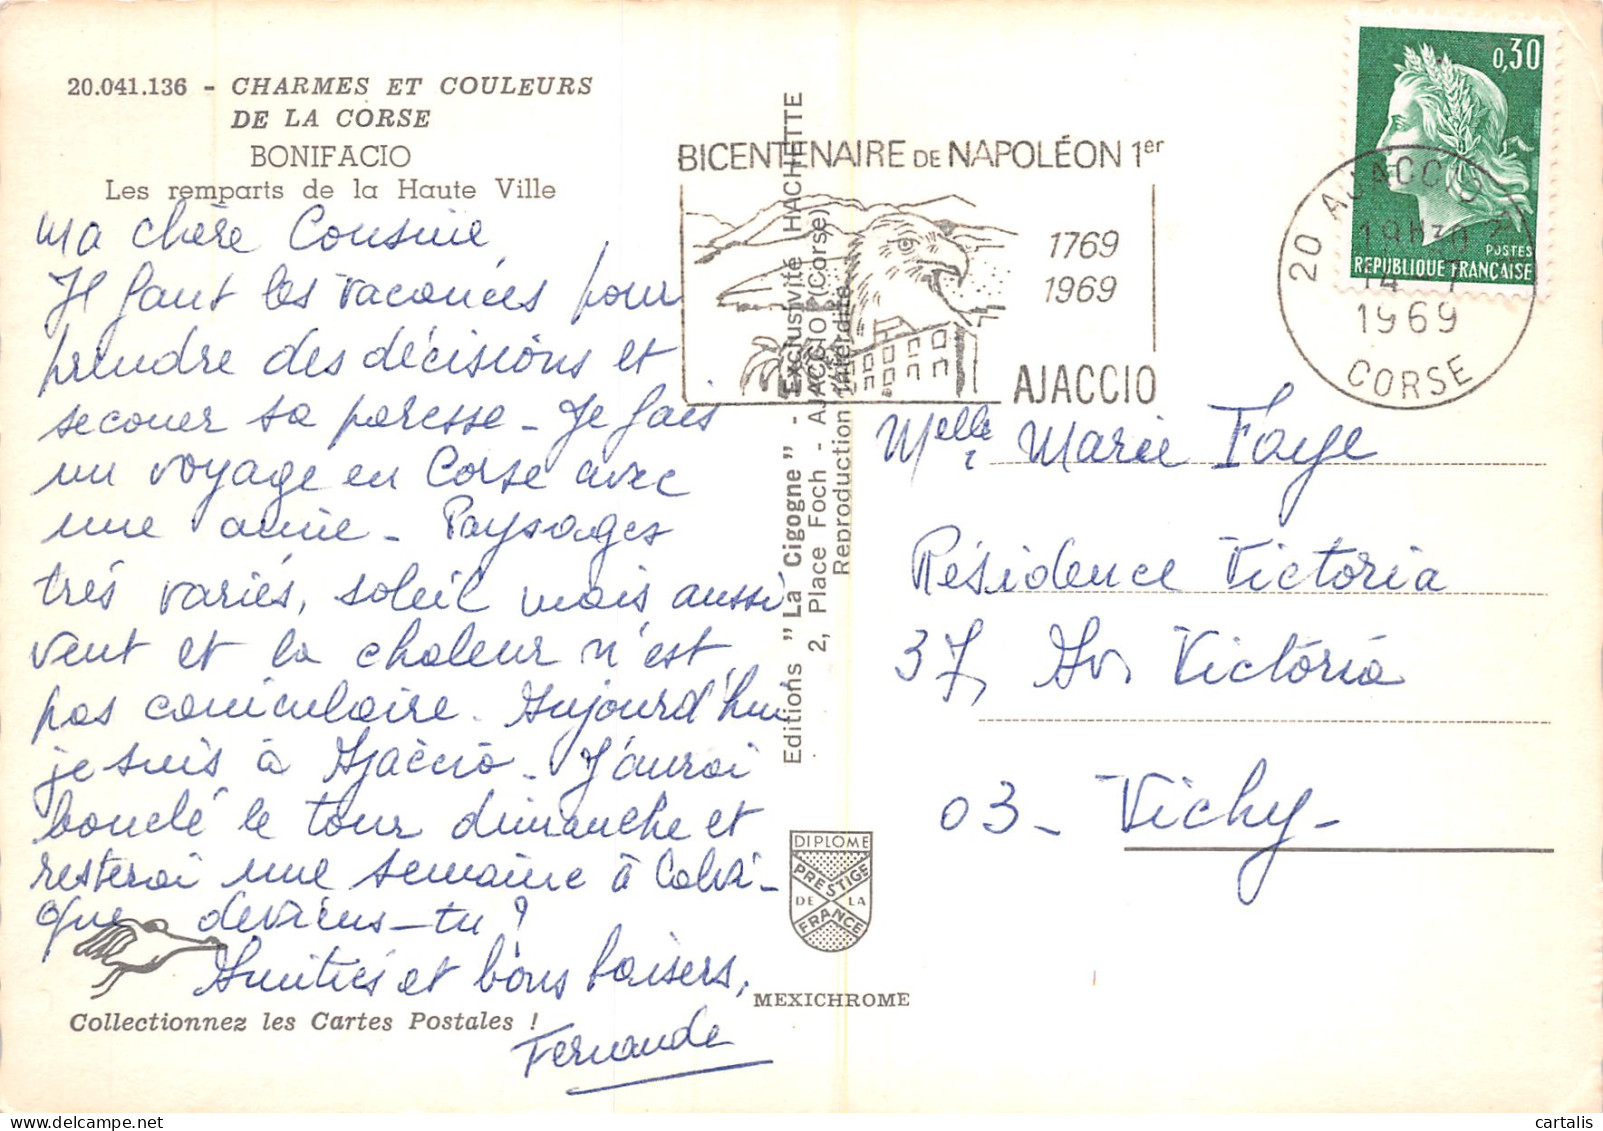 20.041.136 - CHARMES ET COULEURS
DE LA CORSE
BONIFACIO
Les remparts de la Haute Ville
Ma chère Cousine,
Il faut les vacances pour
prendre des décisions et
secouer sa paresse - Je fais
un voyage en Corse avec
une amie - Paysages
très variés, soleil mais aussi
vent et la chaleur n'est
pas caniculaire. Aujourd'hui
je suis à Ajaccio - J'aurai
bouclé le tour dimanche et
resterai une semaine à Calvi -
que deviens-tu ?
Amitiés et bons baisers,
Fernande
Collectionnez les Cartes Postales !
Editions "La Cigogne" - Exclusivité HACHETTE
2, Place Foch - AJACCIO (Corse)
Reproduction interdite
DIPLOME
PRESTIGE
DE LA
FRANCE
MEXICHROME
BICENTENAIRE DE NAPOLÉON 1er
1769
1969
AJACCIO
20 AJACCIO
19H30
14 - 7
1969
CORSE
0,30
POSTES
REPUBLIQUE FRANÇAISE
Melle Marie Faye
Résidence Victoria
37, Av. Victoria
03 - Vichy -
cartalis